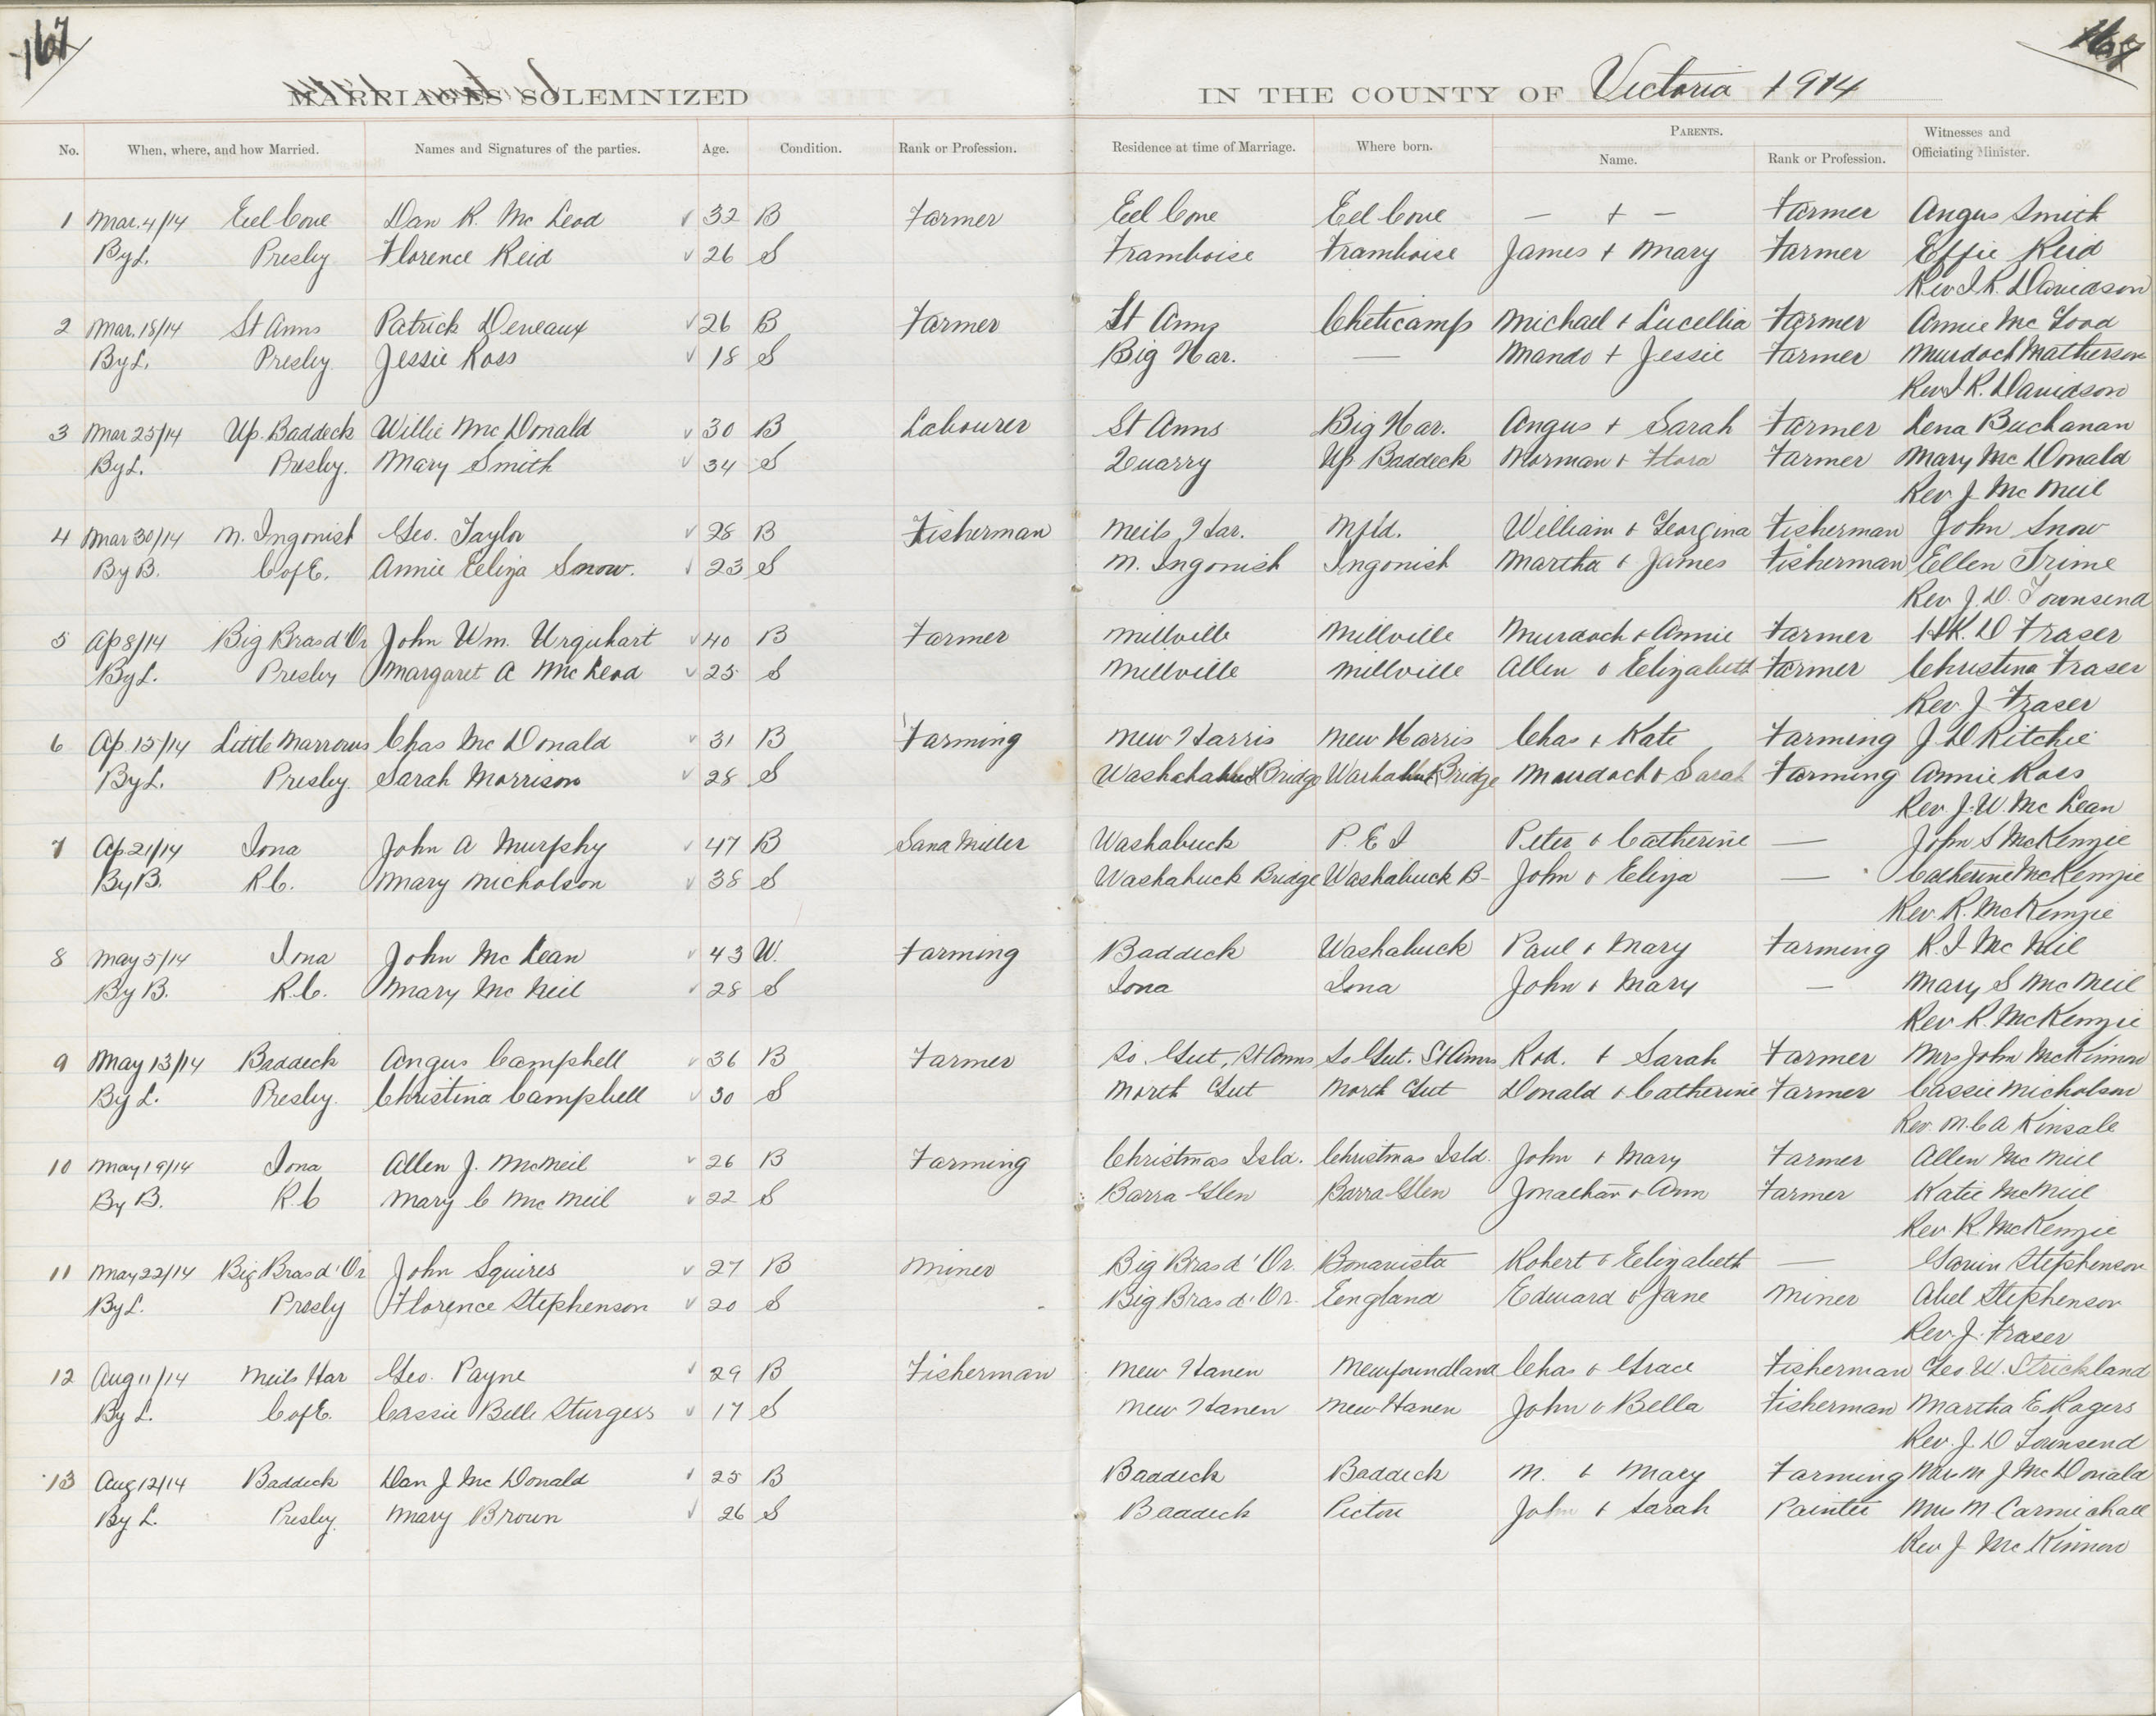 167
167
MARRIAGES SOLEMNIZED
IN THE COUNTY OF Victoria 1914
No. When, where, and how Married. Names and Signatures of the parties. Age. Condition. Rank or Profession. Residence at time of Marriage. Where born. PARENTS. Name. Rank or Profession. Witnesses and Officiating Minister.
1 Mar. 4/14 Eel Cove Dan R. McLeod 32 B Farmer Eel Cove Eel Cove — + — Farmer Angus Smith
By L. Presby Florence Reid 26 S Framboise Framboise James + Mary Farmer Effie Reid
Rev I R. Davidson
2 Mar. 18/14 St Anns Patrick Deveaux 26 B Farmer St Anns Cheticamp Michael + Lucellia Farmer Annie Mc
By L. Presby. Jessie Ross 18 S Big Har. — Mando + Jessie Farmer Murdoch Matherson
Rev I R. Davidson
3 Mar 25/14 Up. Baddeck Willie McDonald 30 B Labourer St Anns Big Har. Angus + Sarah Farmer Lena Buchanan
By L. Presby. Mary Smith 34 S Quarry Up Baddeck Norman + Flora Farmer Mary McDonald
Rev. J. McNeil
4 Mar 30/14 N. Ingonish Geo. Taylor 28 B Fisherman Neils Har. Nfld. William + Georgina Fisherman John Snow
By B. C of E. Annie Eliza Snow. 23 S N. Ingonish Ingonish Martha + James Fisherman Ellen Trime
Rev. J. D. Townsend
5 Ap 8/14 Big Bras d'Or John Wm. Urquhart 40 B Farmer Millville Millville Murdoch + Annie Farmer D Fraser
By L. Presby Margaret A McLeod 25 S Millville Millville Allen + Elizabeth Farmer Christina Fraser
Rev. J. Fraser
6 Ap 15/14 Little Narrows Chas McDonald 31 B Farming New Harris New Harris Chas + Kate Farming J D Ritchie
By L. Presby. Sarah Morrison 28 S Bridge Bridge Murdoch + Sarah Farming Annie Ross
Rev. J. W. McLean
7 Ap 21/14 Iona John A Murphy 47 B Washabuck P. E I Peter + Catherine — John S McKenzie
By B. R.C. Mary Nicholson 38 S Washabuck Bridge Washabuck B- John + Eliza — Catherine McKenzie
Rev. R. McKenzie
8 May 5/14 Iona John McLean 43 W. Farming Baddeck Washabuck Paul + Mary Farming R. I McNeil
By B. R.C. Mary McNeil 28 S Iona Iona John + Mary — Mary S McNeil
Rev R. McKenzie
9 May 13/14 Baddeck Angus Campbell 36 B Farmer So. Gut, St Anns So Gut. St Anns Rod. + Sarah Farmer Mrs John McKinnon
By L. Presby. Christina Campbell 30 S North Gut North Gut Donald + Catherine Farmer Cassie Nicholson
Rev. M. C A Kinsale
10 May 19/14 Iona Allen J. McNeil 26 B Farming Christmas Isld. Christmas Isld. John + Mary Farmer Allen McNeil
By B. R.C Mary C McNeil 22 S Barra Glen Barra Glen Jonathan + Ann Farmer Katie McNeil
Rev. R. McKenzie
11 May 22/14 Big Bras d'Or John Squires 27 B Miner Big Bras d'Or. Bonavista Robert + Elizabeth — Stephenson
By L. Presby Florence Stephenson 20 S Big Bras d'Or. England Edward + Jane Miner Abel Stephenson
Rev. J. Fraser
12 Aug 11/14 Neils Har Geo. Payne 29 B Fisherman New Haven Newfoundland Chas + Grace Fisherman Geo W. Strickland
By L. C of E. Cassie Belle Sturgess 17 S New Haven New Haven John + Bella Fisherman Martha E Rogers
Rev. J. D Townsend
13 Aug 12/14 Baddeck Dan J McDonald 25 B Baddeck Baddeck M. + Mary Farming J McDonald
By L. Presby. Mary Brown 26 S Baddeck Pictou John + Sarah Painter Mrs M Carmichael
Rev J McKinnon